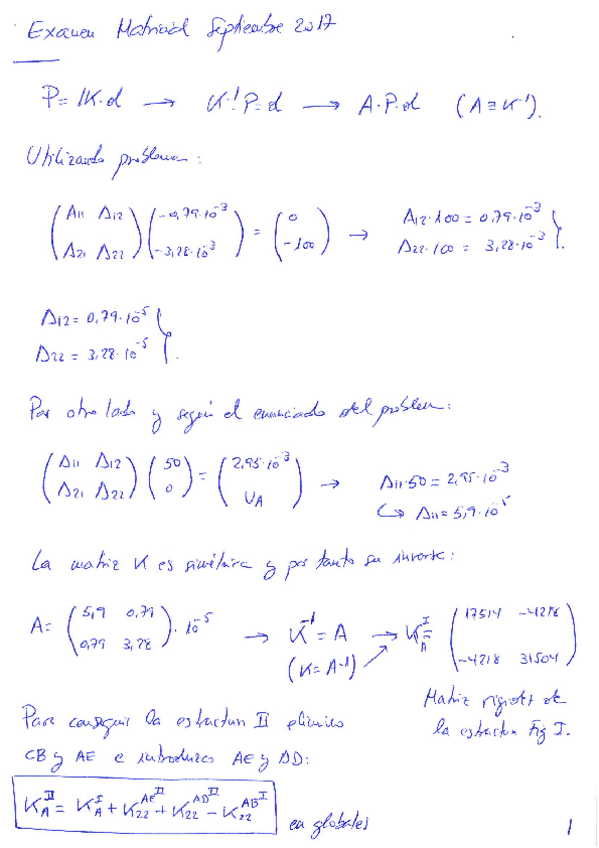 Examen Matricial Septiembre 2017
P = K·d → K⁻¹P = d → A·P·d (A ≡ K⁻¹).
Utilizando problema:
(A11 A12 / A21 A22) (-0,79·10⁻³ / -3,28·10⁻³) = (0 / -100) → A12·100 = 0,79·10⁻³ / A22·100 = 3,28·10⁻³ }.
A12 = 0,79·10⁻⁵
A22 = 3,28·10⁻⁵ }.
Por otro lado y según el enunciado del problema:
(A11 A12 / A21 A22) (50 / 0) = (2,95·10⁻³ / UA) → A11·50 = 2,95·10⁻³
↳ A11 = 5,9·10⁻⁵
La matriz K es simétrica y por tanto su inversa:
A = (5,9 0,79 / 0,79 3,28)·10⁻⁵ → K⁻¹ = A (K = A⁻¹) → K_A^I = (17514 -4218 / -4218 31504)
Matriz rigidez de
la estructura Fig I.
Para conseguir la estructura II elimino
CB y AE e introduzco AE y AD:
K_A^II = K_A^I + K_22^AE^II + K_22^AD^II - K_22^AB^I en globales
1